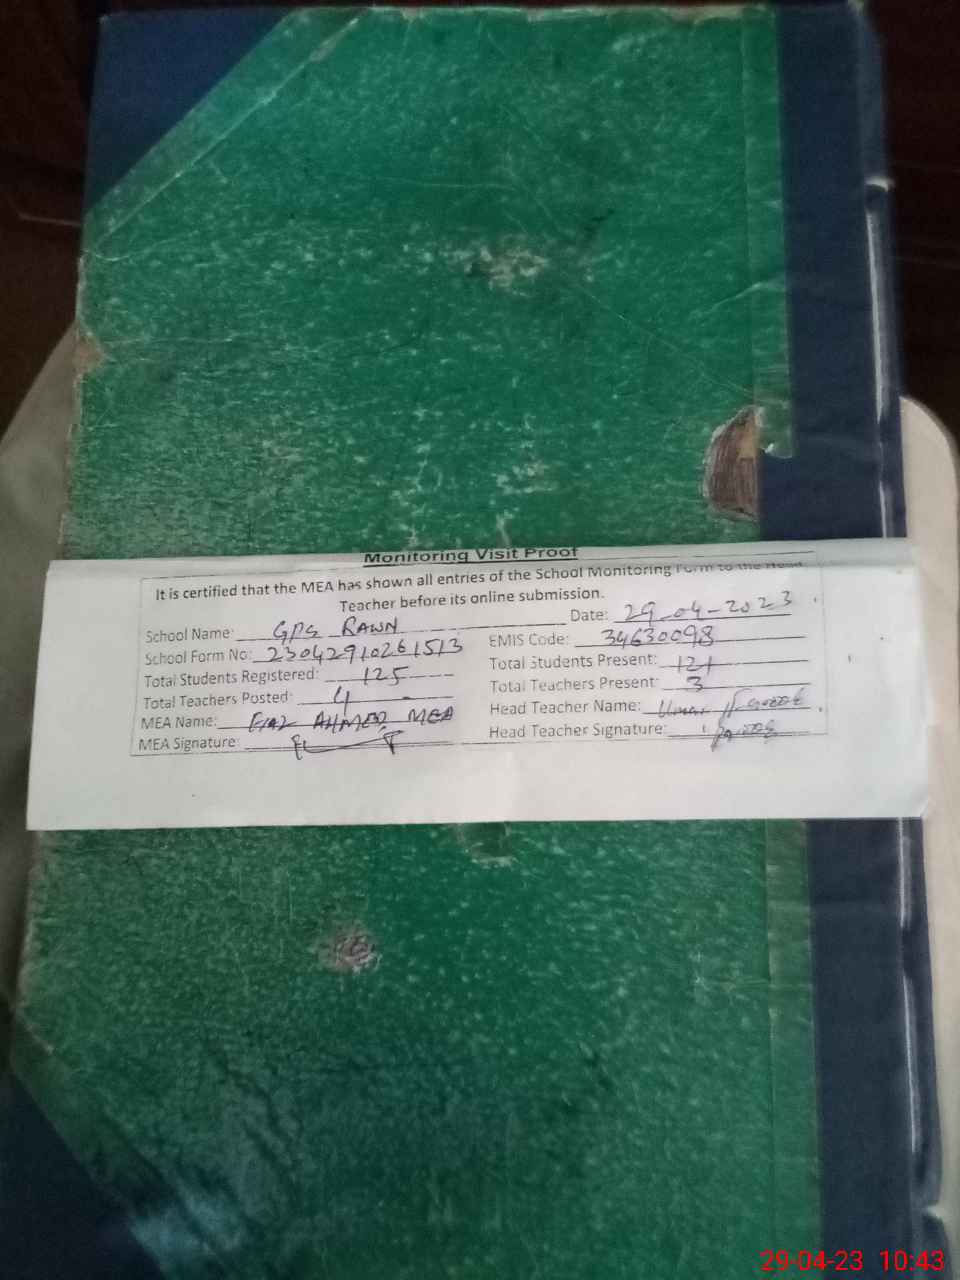 Monitoring Visit Proof
It is certified that the MEA has shown all entries of the School Monitoring Form to the Head
Teacher before its online submission.
School Name: GPS RAWN Date: 29-04-2023
School Form No: 23042910261513 EMIS Code: 34630098
Total Students Registered: 125 Total Students Present: 121
Total Teachers Posted: 4 Total Teachers Present: 3
MEA Name: FIAZ AHMED MEA Head Teacher Name: Umar Farooq
MEA Signature: Head Teacher Signature:
29-04-23 10:43